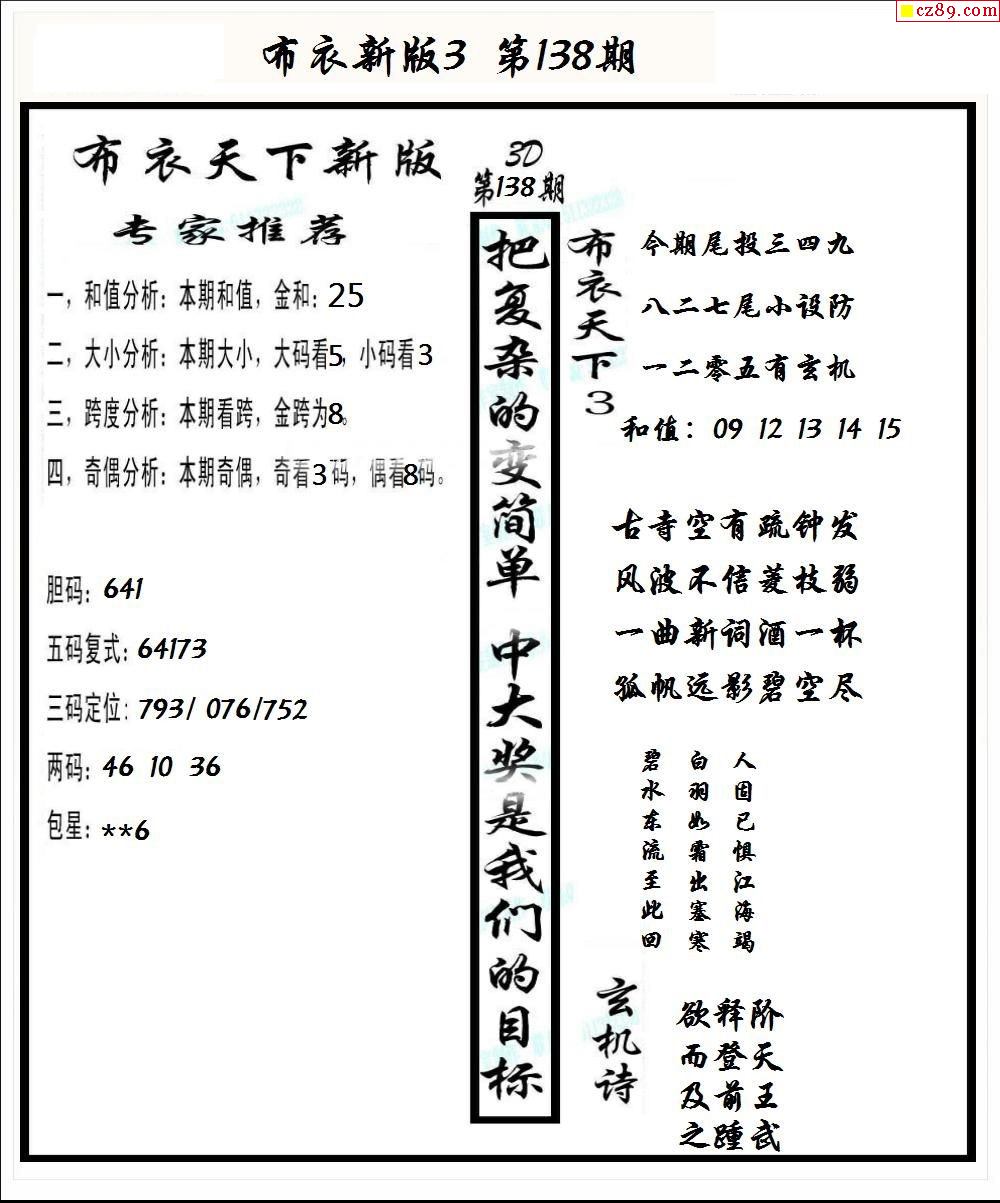 cz89.com
布衣新版3 第138期
布衣天下新版
专家推荐
一，和值分析：本期和值，金和：25
二，大小分析：本期大小，大码看5，小码看3
三，跨度分析：本期看跨，金跨为8。
四，奇偶分析：本期奇偶，奇看3码，偶看8码。
胆码：641
五码复式：64173
三码定位：793/ 076/752
两码：46 10 36
包星：**6
3D
第138期
把复杂的变简单 中大奖是我们的目标
布衣天下3
今期尾投三四九
八二七尾小设防
一二零五有玄机
和值：09 12 13 14 15
古寺空有疏钟发
风波不信菱枝弱
一曲新词酒一杯
孤帆远影碧空尽
人固已惧江海竭
白羽如霜出塞寒
碧水东流至此回
玄机诗
欲释阶
而登天
及前王
之踵武